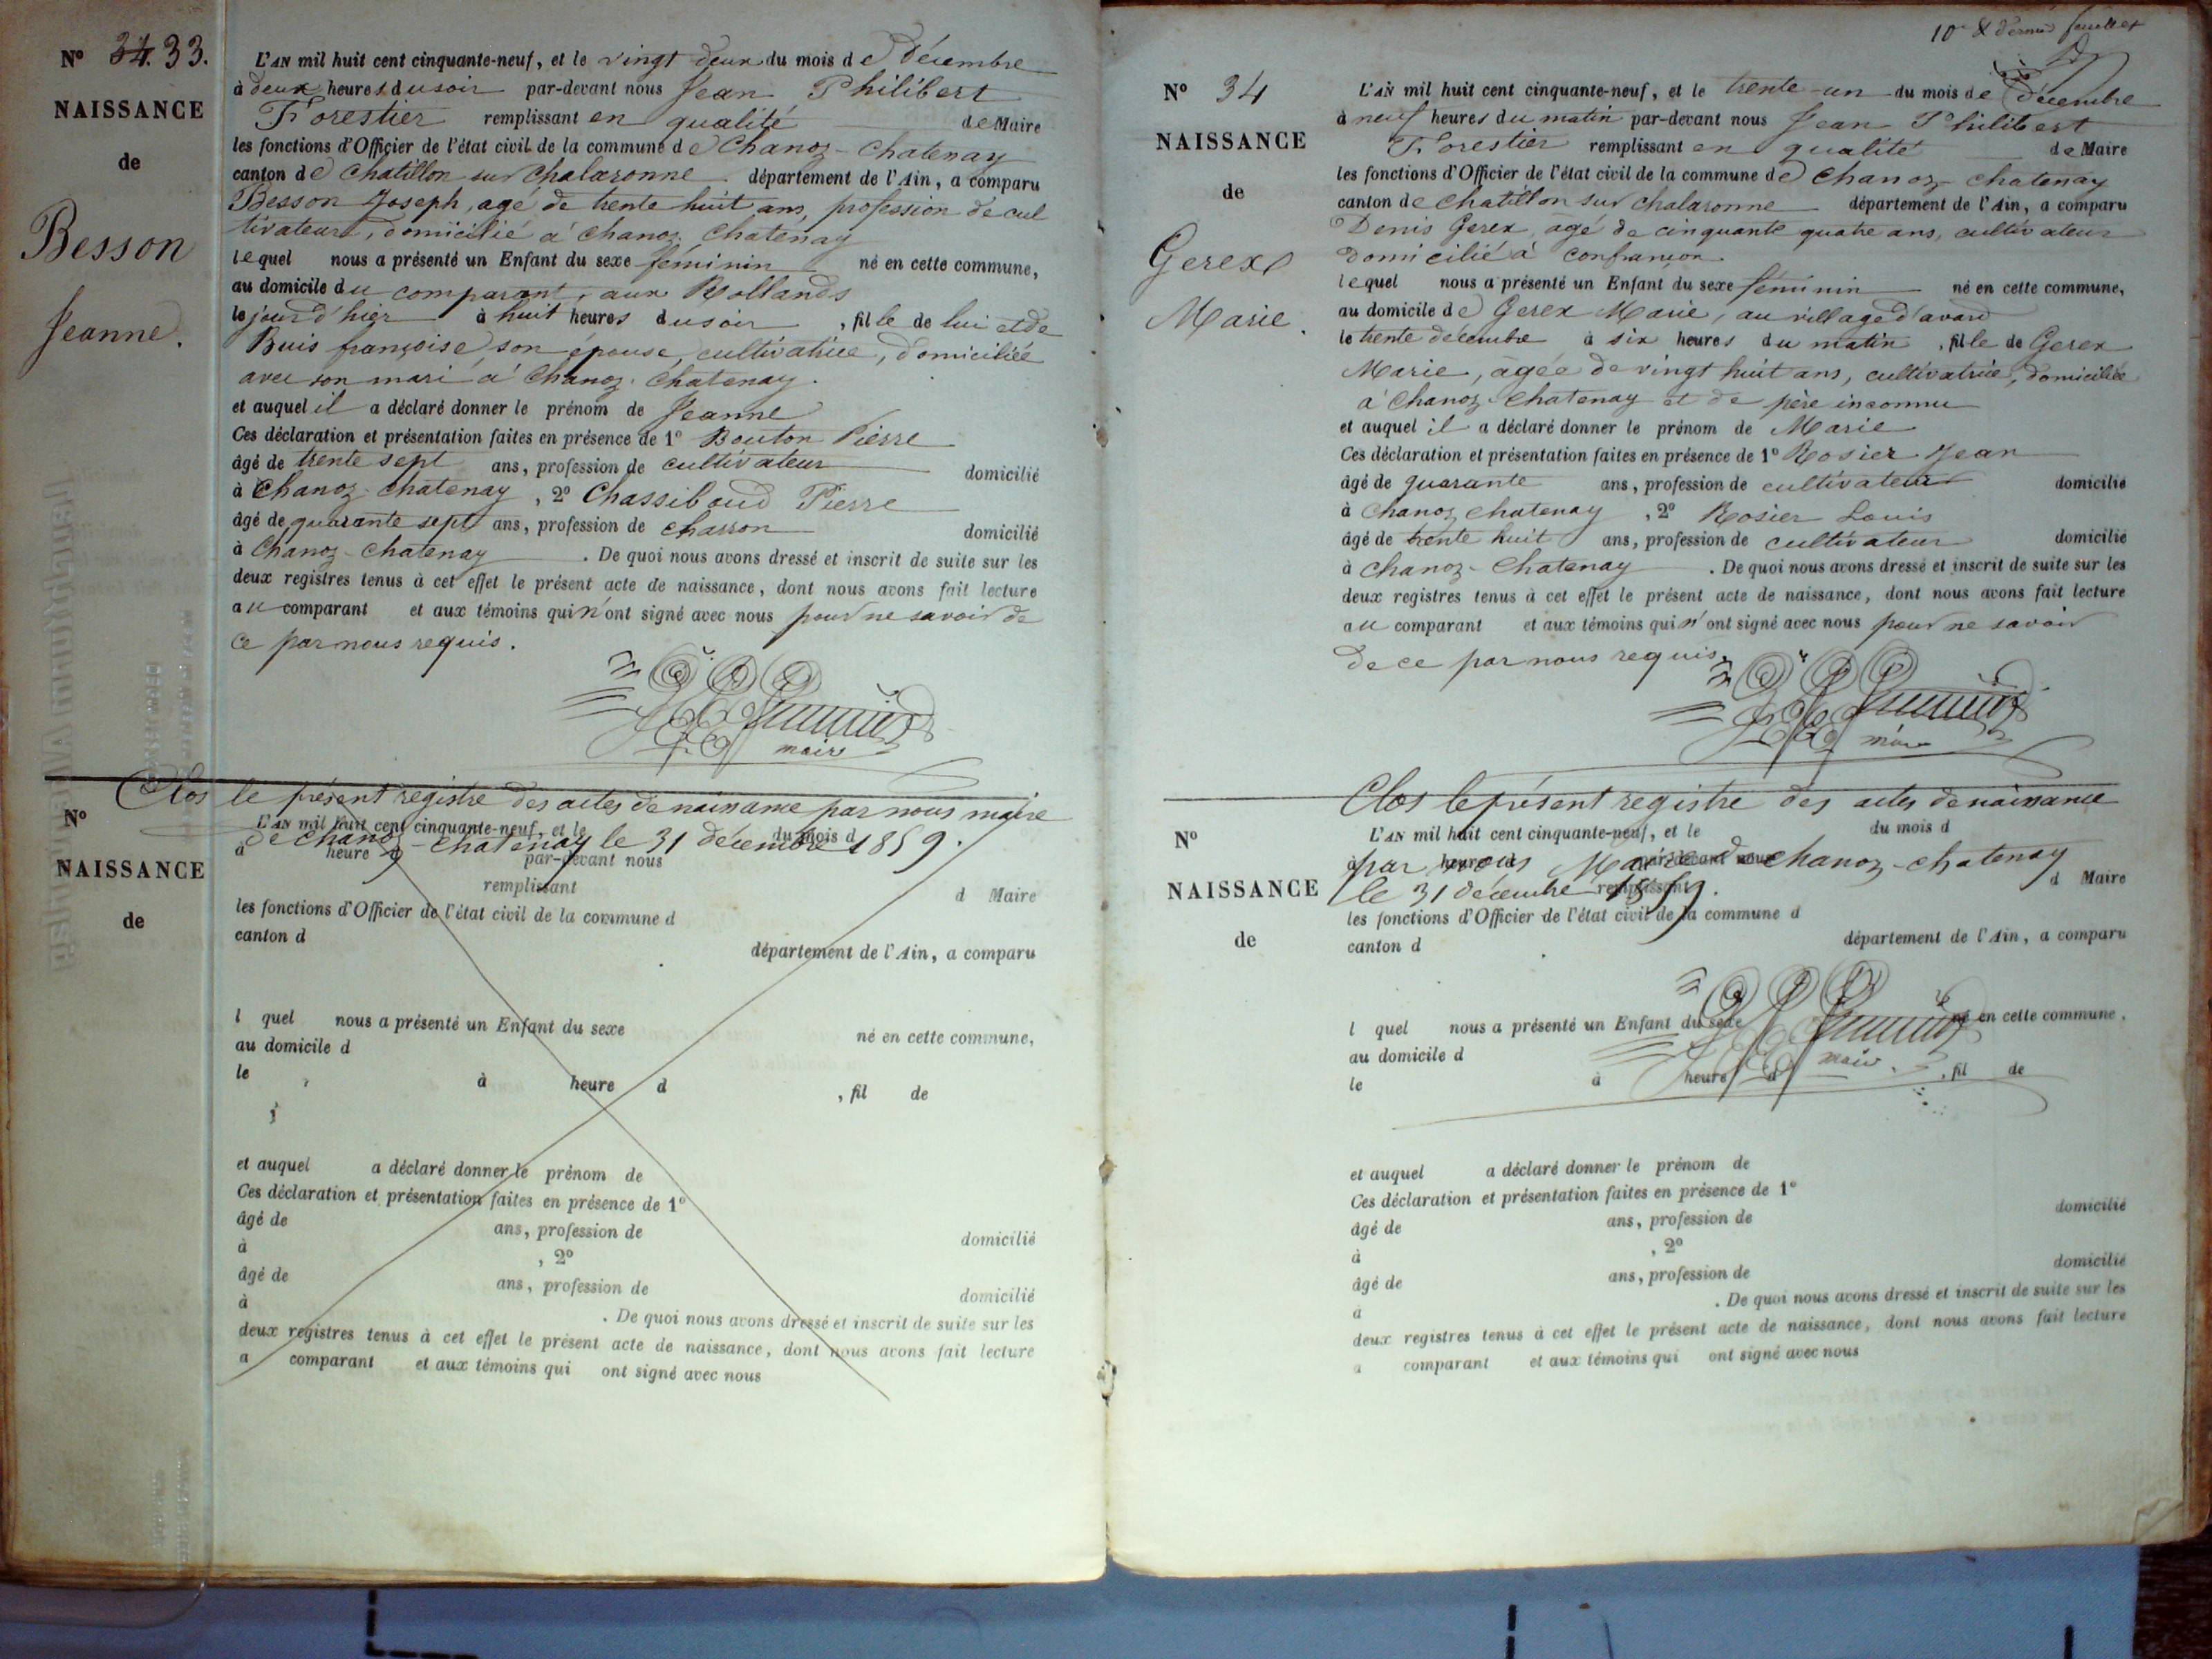 Nº 34. 33.
NAISSANCE
de
Besson
Jeanne.
L'AN mil huit cent cinquante-neuf, et le vingt deux du mois de Décembre
à deux heures du soir par-devant nous Jean Philibert
Forestier remplissant en qualité de Maire
les fonctions d'Officier de l'état civil de la commune de Chanoz-Chatenay
canton de Chatillon sur Chalaronne département de l'Ain, a comparu
Besson Joseph, agé de trente huit ans, profession de cul
tivateur, domicilié à Chanoz Chatenay
lequel nous a présenté un Enfant du sexe féminin né en cette commune,
au domicile du comparant, aux Rollands
le jour d'hier à huit heures du soir, fille de lui et de
Buis françoise son épouse, cultivatrice, domiciliée
avec son mari à Chanoz-Chatenay.
et auquel il a déclaré donner le prénom de Jeanne
Ces déclaration et présentation faites en présence de 1º Bouton Pierre
âgé de trente sept ans, profession de cultivateur domicilié
à Chanoz-chatenay, 2º Chassiboud Pierre
âgé de quarante sept ans, profession de charron domicilié
à Chanoz-Chatenay. De quoi nous avons dressé et inscrit de suite sur les
deux registres tenus à cet effet le présent acte de naissance, dont nous avons fait lecture
au comparant et aux témoins qui n'ont signé avec nous pour ne savoir de
ce par nous requis.
maire
Clos le présent registre des actes de naissance par nous maire
de Chanoz-Chatenay le 31 décembre 1859.
Nº
NAISSANCE
de
L'AN mil huit cent cinquante-neuf, et le du mois d
à heure d par-devant nous
remplissant d Maire
les fonctions d'Officier de l'état civil de la commune d
canton d département de l'Ain, a comparu
l quel nous a présenté un Enfant du sexe né en cette commune,
au domicile d
le à heure d, fil de
et auquel a déclaré donner le prénom de
Ces déclaration et présentation faites en présence de 1º
âgé de ans, profession de domicilié
à, 2º
âgé de ans, profession de domicilié
à. De quoi nous avons dressé et inscrit de suite sur les
deux registres tenus à cet effet le présent acte de naissance, dont nous avons fait lecture
a comparant et aux témoins qui ont signé avec nous
10e & dernier feuillet
Nº 34
NAISSANCE
de
Gerex
Marie.
L'AN mil huit cent cinquante-neuf, et le trente-un du mois de Décembre
à neuf heures du matin par-devant nous Jean Philibert
Forestier remplissant en qualité de Maire
les fonctions d'Officier de l'état civil de la commune de Chanoz-chatenay
canton de Chatillon sur chalaronne département de l'Ain, a comparu
Denis Gerex, agé de cinquante quatre ans, cultivateur
domicilié à confrançon
lequel nous a présenté un Enfant du sexe féminin né en cette commune,
au domicile de Gerex Marie, au village d'avard
le trente décembre à six heures du matin, fille de Gerex
Marie, agée de vingt huit ans, cultivatrice, domiciliée
à Chanoz-Chatenay et de père inconnu
et auquel il a déclaré donner le prénom de Marie
Ces déclaration et présentation faites en présence de 1º Rosier Jean
âgé de quarante ans, profession de cultivateur domicilié
à Chanoz chatenay, 2º Rosier Louis
âgé de trente huit ans, profession de cultivateur domicilié
à chanoz-Chatenay. De quoi nous avons dressé et inscrit de suite sur les
deux registres tenus à cet effet le présent acte de naissance, dont nous avons fait lecture
au comparant et aux témoins qui n'ont signé avec nous pour ne savoir
de ce par nous requis.
maire
Clos le présent registre des actes de naissance
par nous Maire de chanoz-chatenay
le 31 décembre 1859.
Nº
NAISSANCE
de
L'AN mil huit cent cinquante-neuf, et le du mois d
à heure d par-devant nous
remplissant d Maire
les fonctions d'Officier de l'état civil de la commune d
canton d département de l'Ain, a comparu
l quel nous a présenté un Enfant du sexe né en cette commune,
au domicile d
maire
le à heure d, fil de
et auquel a déclaré donner le prénom de
Ces déclaration et présentation faites en présence de 1º
âgé de ans, profession de domicilié
à, 2º
âgé de ans, profession de domicilié
à. De quoi nous avons dressé et inscrit de suite sur les
deux registres tenus à cet effet le présent acte de naissance, dont nous avons fait lecture
a comparant et aux témoins qui ont signé avec nous